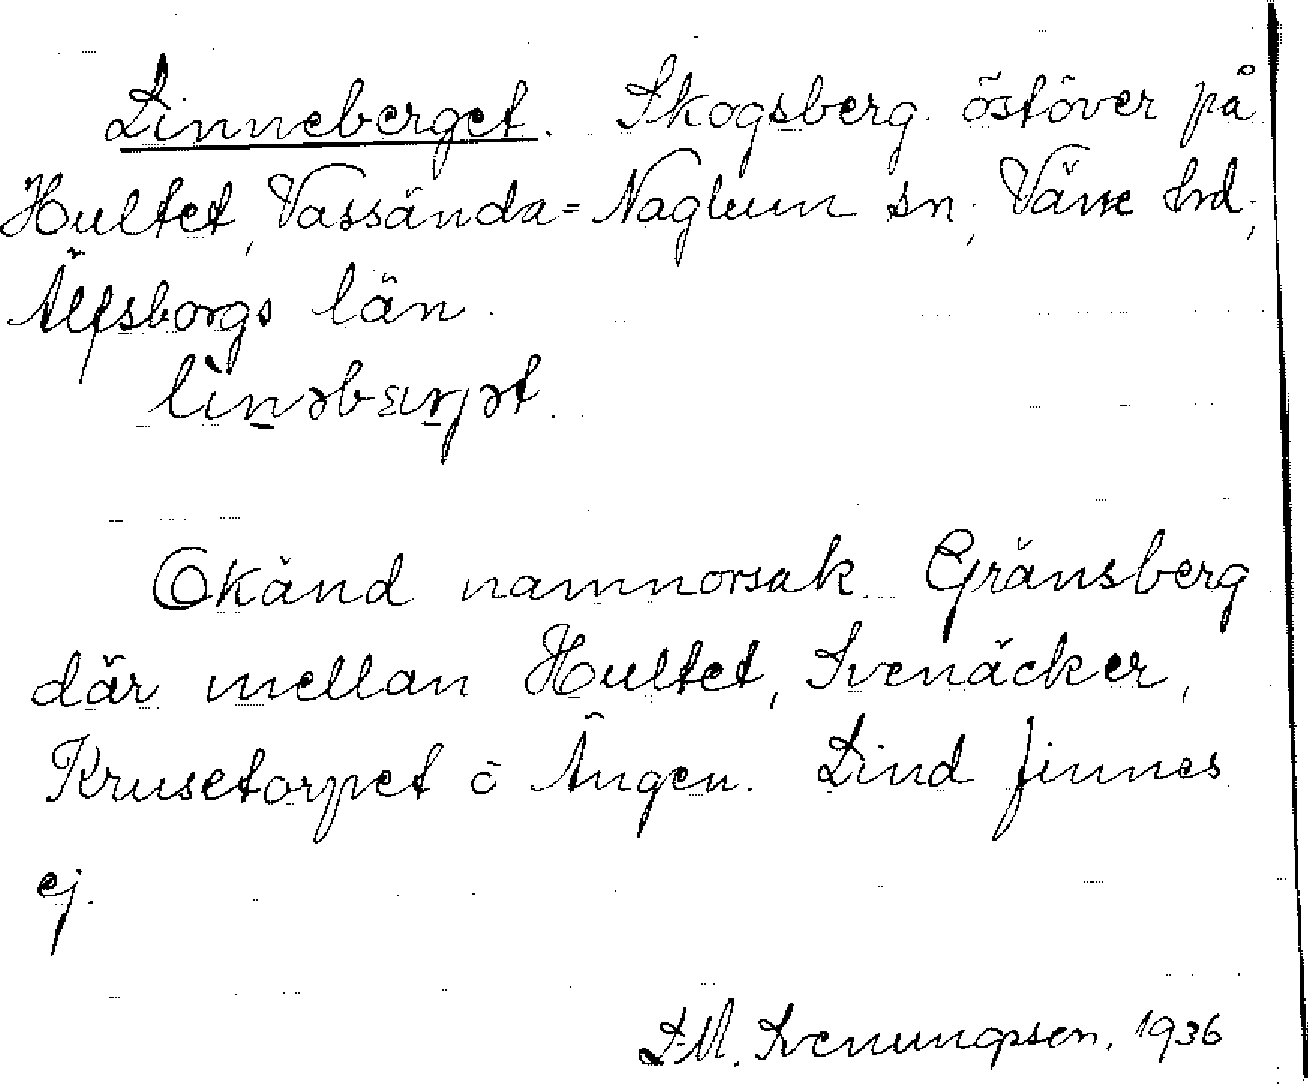 Linneberget. Skogsberg östöver på
Hultet, Vassända=Naglum sn, Väne hd,
Älfsborgs län.
lìnəbærjət.
Okänd namnorsak. Gränsberg
där mellan Hultet, Svenäcker,
Krusetorpet o Ängen. Lind finnes
ej.
L.M. Svenungsson, 1936